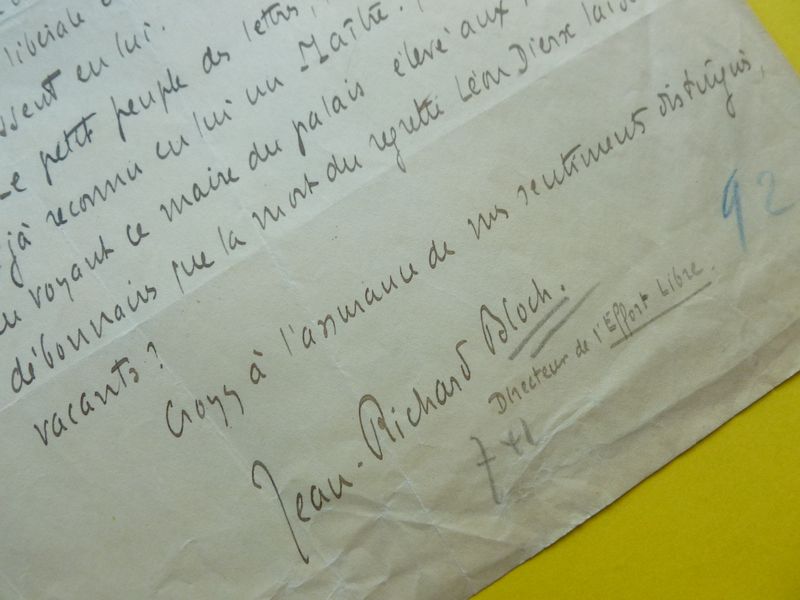 libérale
ssent en lui.
Le petit peuple des lettres,
jà reconnu en lui un Maître.
en voyant ce maire du palais élevé aux
débonnaire que la mort du regretté Léon Dierx
vacants?
Croyez à l'assurance de mes sentiments distingués,
Jean-Richard Bloch.
Directeur de l'Effort Libre.
92